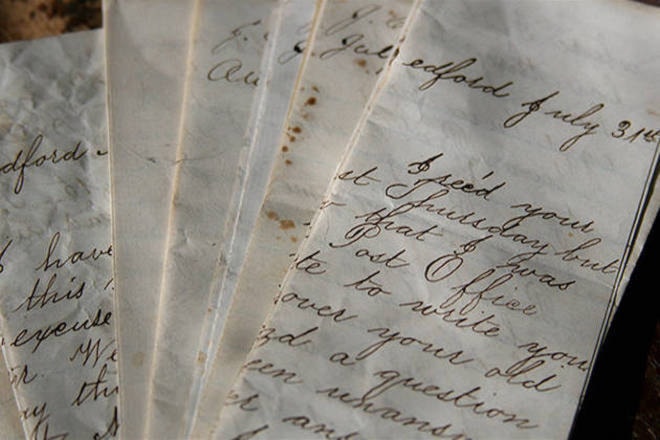 dford
I have
this
excuse
r. We
ay thi
J.
Au
J. Jul
edford July 31st
I rec'd your
st Thursday but
r that I was
Post Office
te to write you
over your old
d a question
een unansw
er an